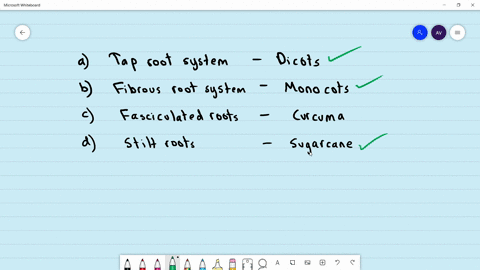 Microsoft Whiteboard
AV
a) Tap root system - Dicots
b) Fibrous root system - Monocots
c) Fasciculated roots - Curcuma
d) Stilt roots - Sugarcane